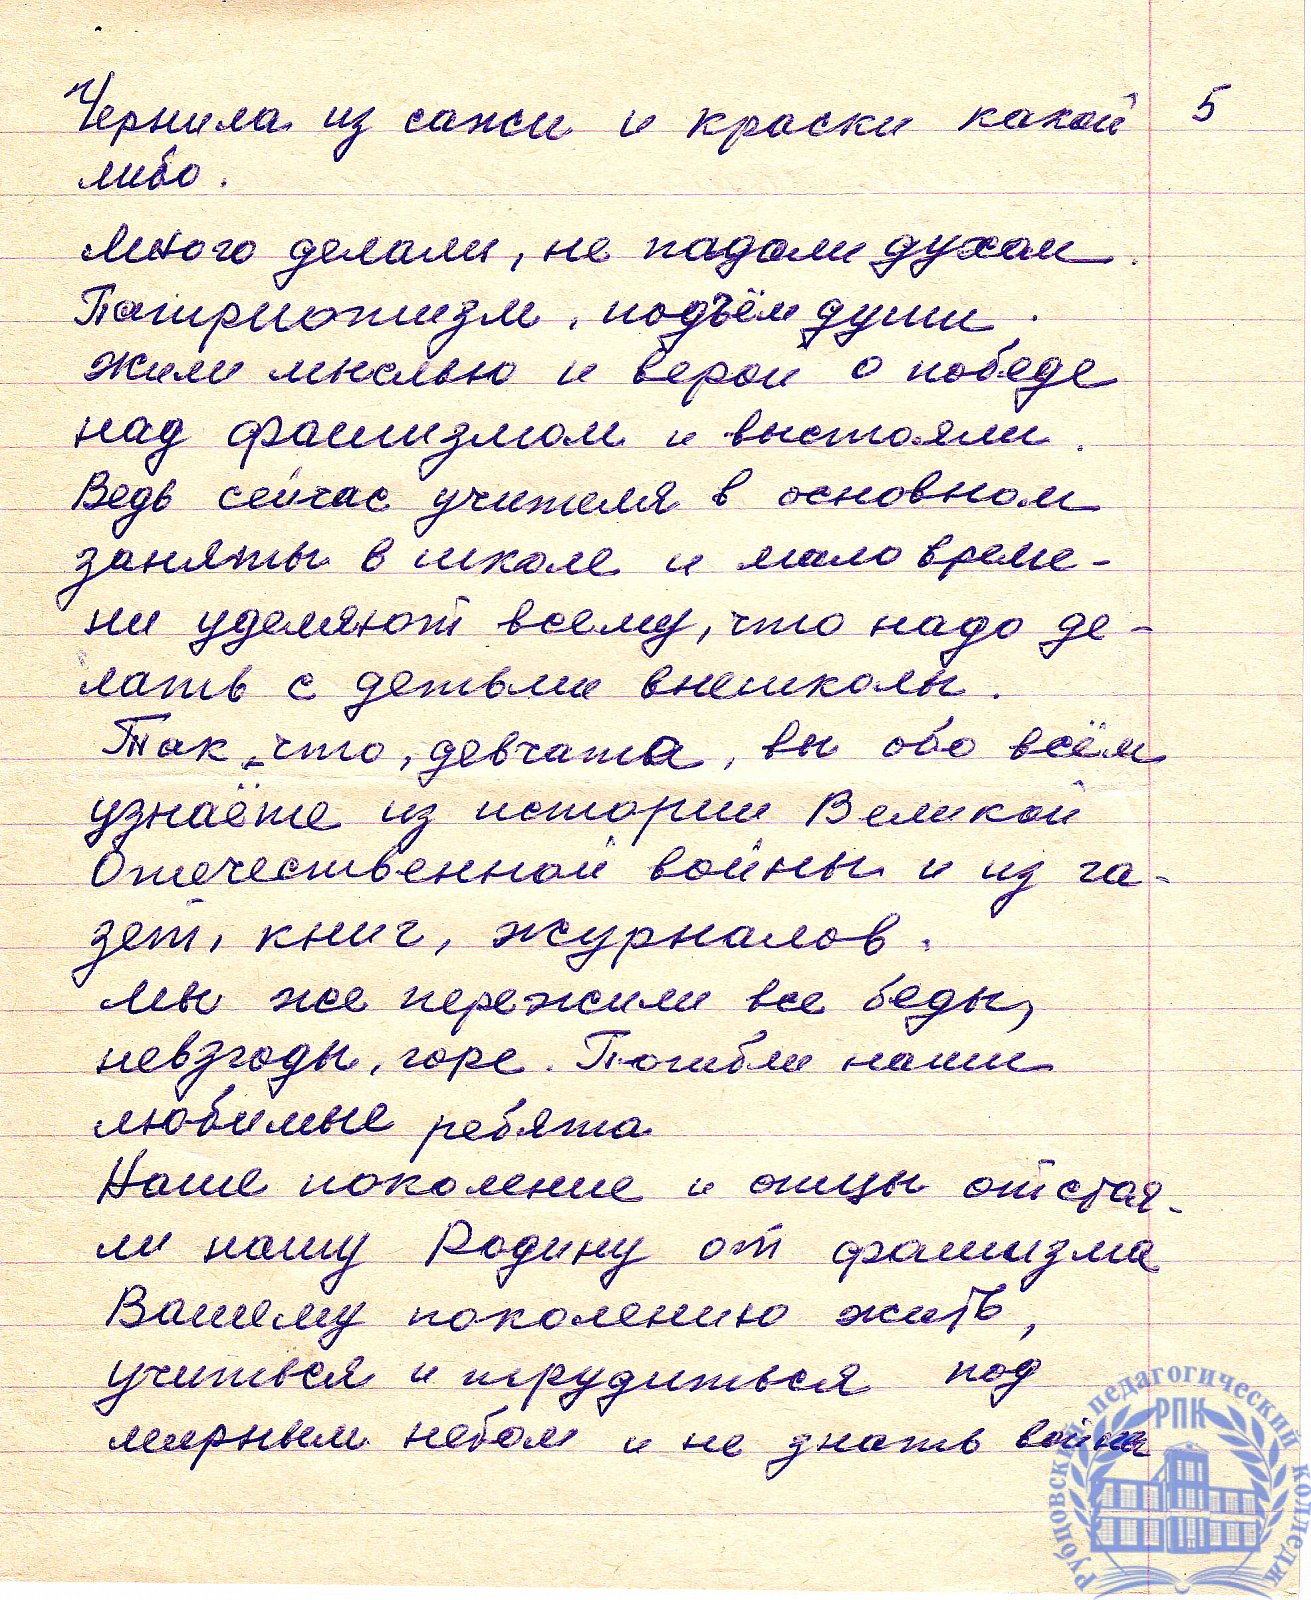 Чернила из сажи и краски какой 5
либо.
Много делали, не падали духом.
Патриотизм, подъём души.
Жили мыслью и верой о победе
над фашизмом и выстояли.
Ведь сейчас учителя в основном
заняты в школе и мало време-
ни уделяют всему, что надо де-
лать с детьми внешколы.
Так что, девчата, вы обо всём
узнаёте из истории Великой
Отечественной войны и из га-
зет, книг, журналов.
Мы же пережили все беды,
невзгоды, горе. Погибли наши
любимые ребята
Наше поколение и отцы отстоя-
ли нашу Родину от фашизма
Вашему поколению жить,
учиться и трудиться под
мирным небом и не знать войны
Рубцовский педагогический колледж
РПК